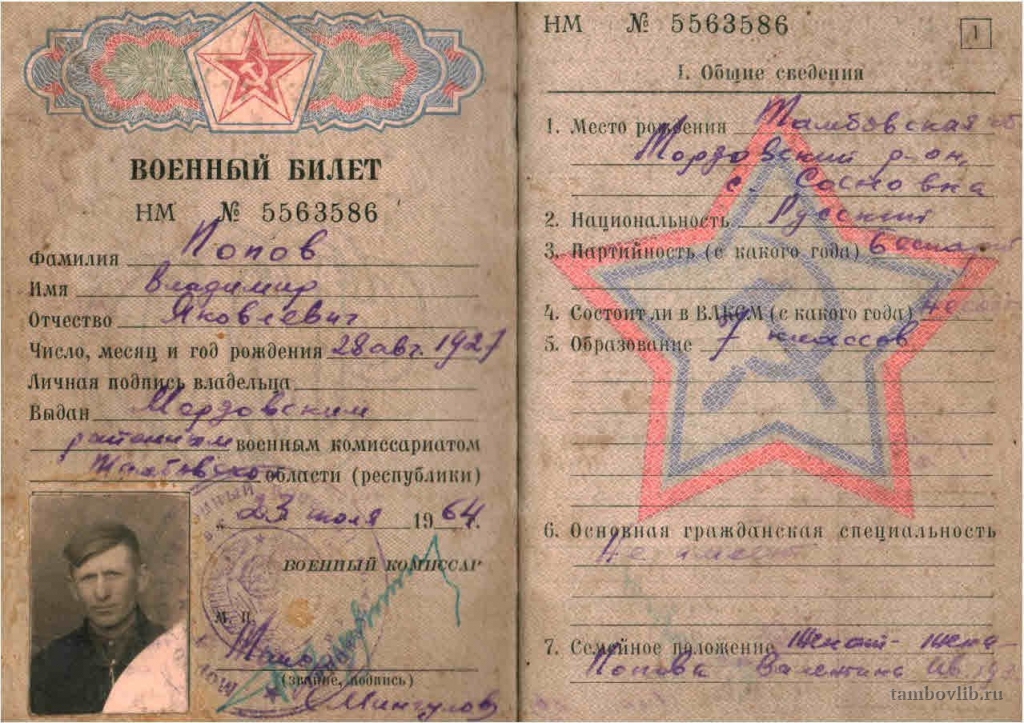 ВОЕННЫЙ БИЛЕТ
НМ № 5563586
Фамилия Попов
Имя Владимир
Отчество Яковлевич
Число, месяц и год рождения 28 авг. 1927
Личная подпись владельца
Выдан Мордовским
районным военным комиссариатом
Тамбовской области (республики)
23 июля 1964 г.
ВОЕННЫЙ КОМИССАР
М. П.
(звание, подпись)
НМ № 5563586
1
I. Общие сведения
1. Место рождения Тамбовская об
Мордовский р-он,
с. Сосновка
2. Национальность Русский
3. Партийность (с какого года)
4. Состоит ли в ВЛКСМ (с какого года)
5. Образование 7 классов
6. Основная гражданская специальность
Не имеет
7. Семейное положение Женат- жена
Попова Валентина
tambovlib.ru